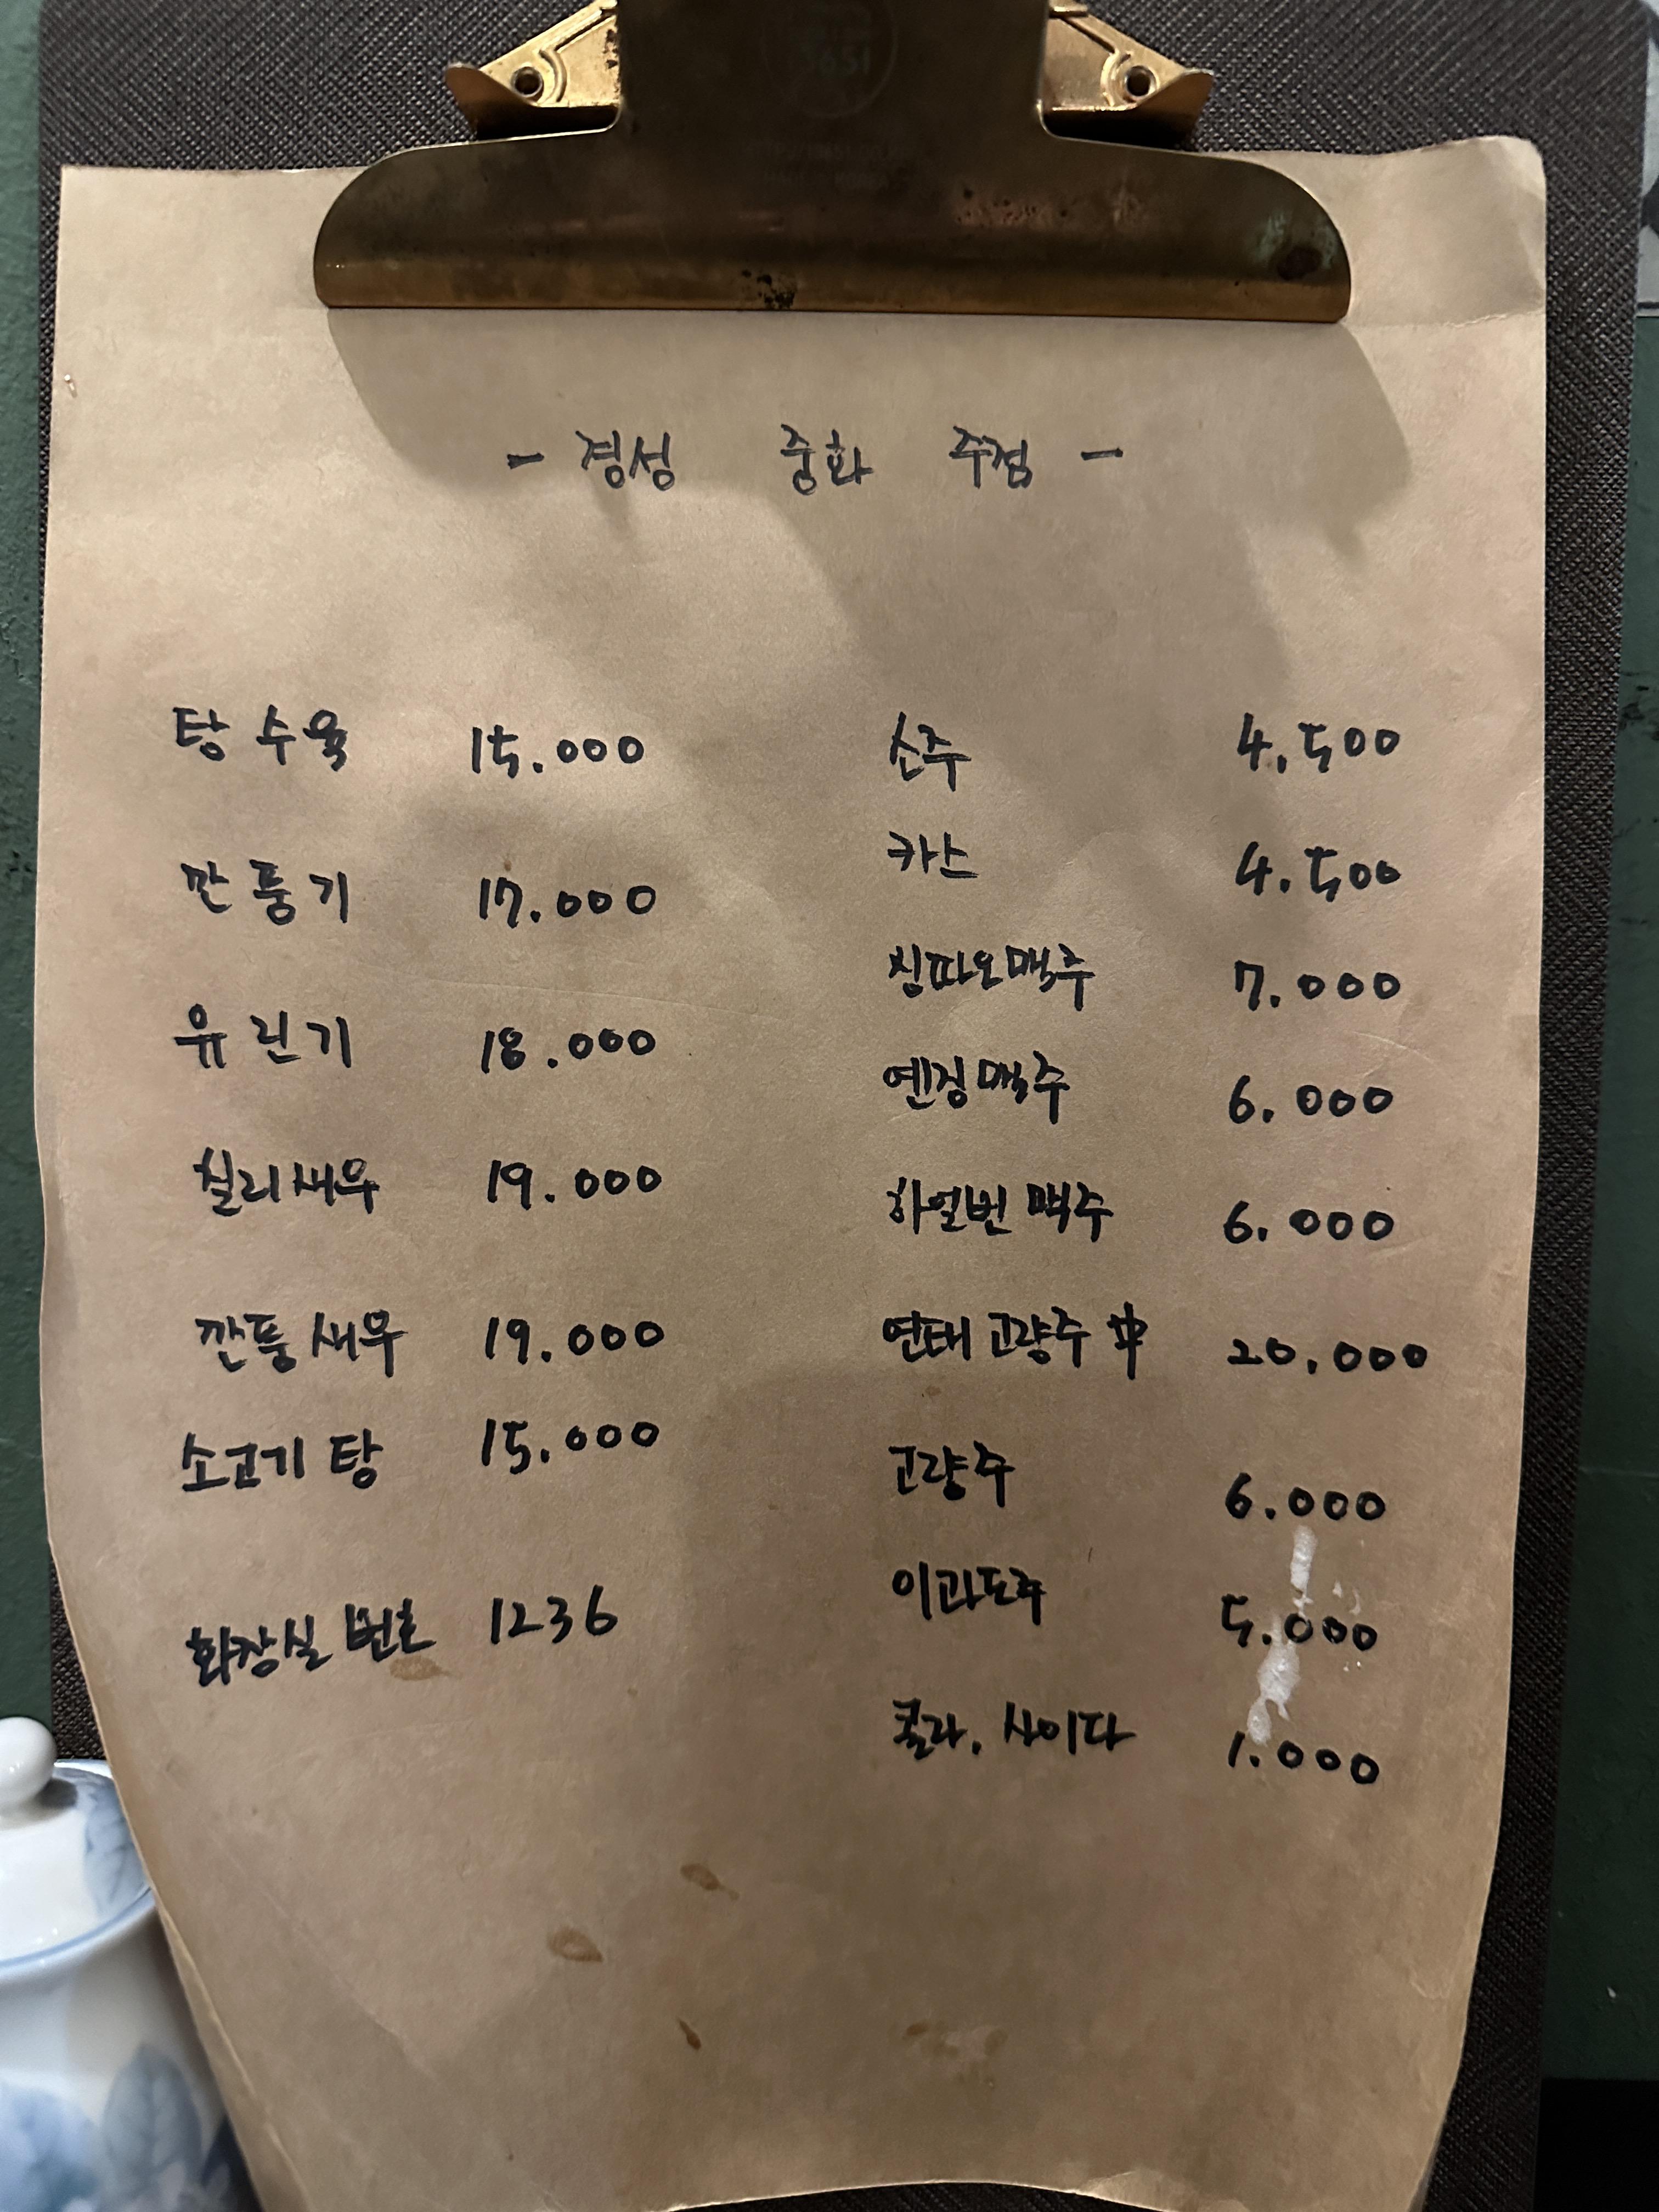 - 경성 중화 주점 -
탕수육 15.000
깐풍기 17.000
유린기 18.000
칠리새우 19.000
깐풍새우 19.000
소고기탕 15.000
화장실 번호 1236
소주 4.500
카스 4.500
칭따오맥주 7.000
옌징맥주 6.000
하얼빈 맥주 6.000
연태고량주 中 20.000
고량주 6.000
이과도주 5.000
콜라, 사이다 1.000